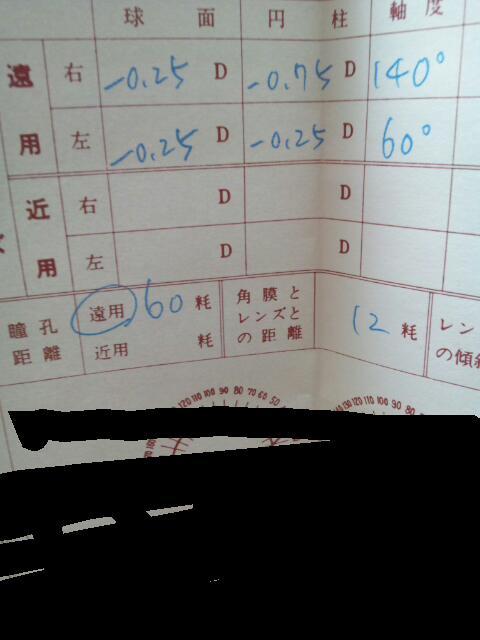 球面 円柱 軸度
遠用 右 -0.25 D -0.75 D 140°
左 -0.25 D -0.25 D 60°
近用 右 D D
左 D D
瞳孔距離 遠用 60 粍 角膜とレンズとの距離 12 粍 レン
近用 粍 の傾斜
120 110 100 90 80 70 60 50
120 110 100 90 80